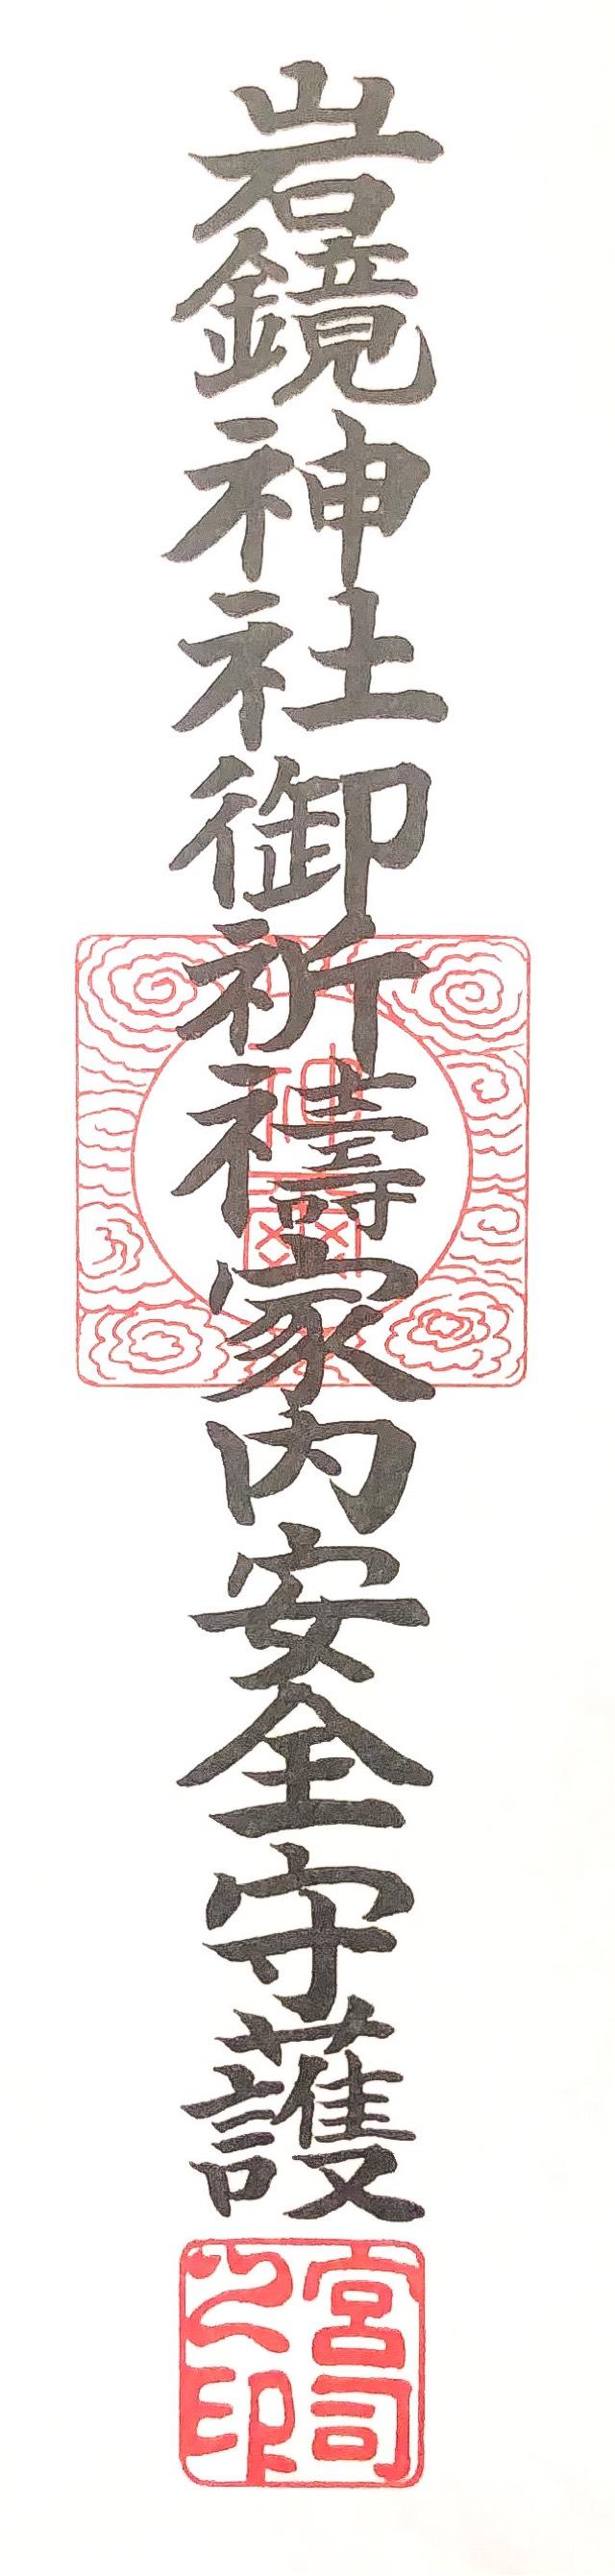 岩鏡神社御祈禱家内安全守護
宮司
之印